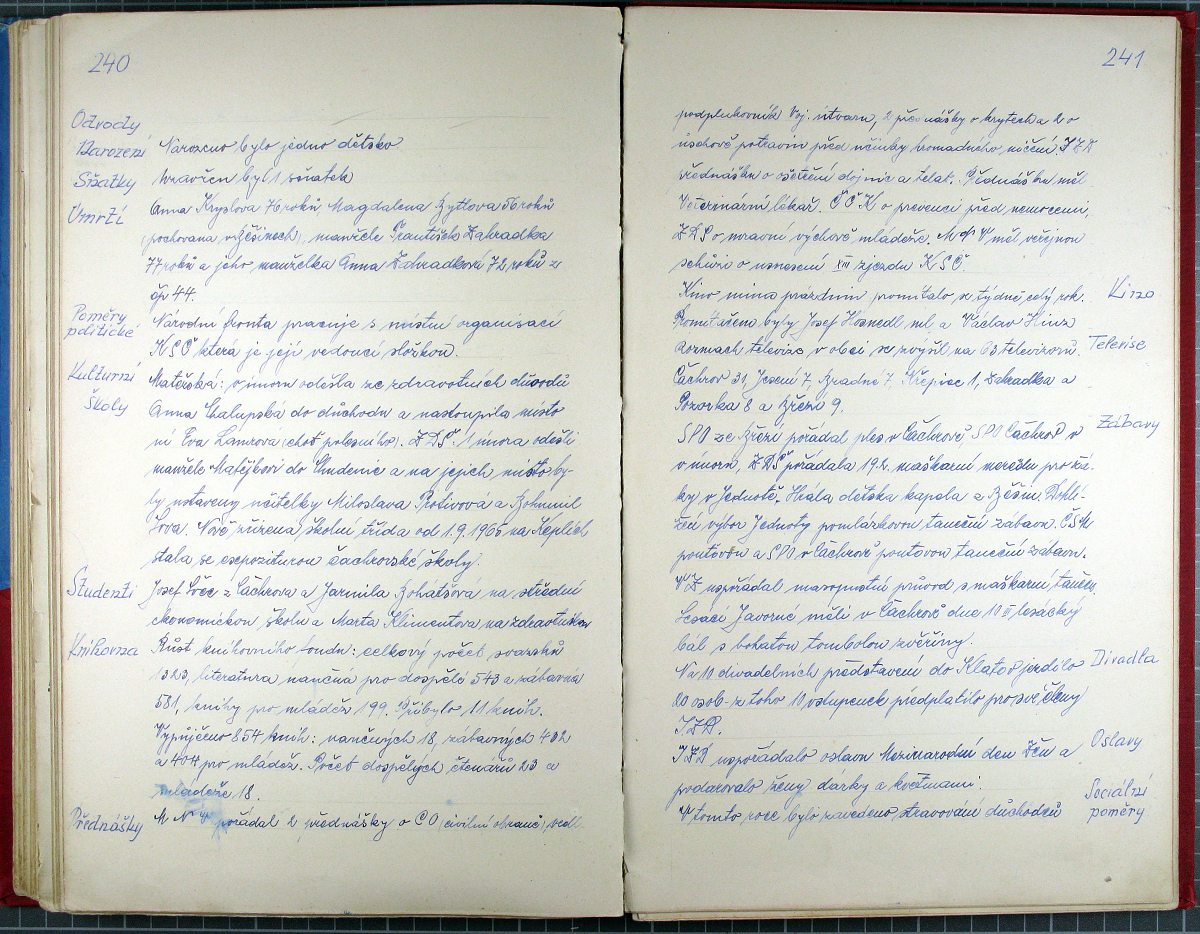 240
Odvody
Narození Narozeno bylo jedno dětsko
Sňatky Uzavřen byl 1 sňatek
Úmrtí Anna Kryslova 76 roků Magdalena Bytlova 56 roků
(pochovana v Běšinech), manžele František Zahradka
77 roků a jeho manželka Anna Zahradkova 72 roků z
čp 44.
Poměry Národní fronta pracuje s místní organisací
politické KSČ ktera je její vedoucí složkou.
Kulturní Mateřská: v únoru odešla ze zdravotných důvodů
Školy Anna Chalupská do důchodu a nastoupila místo
ní Eva Lamrova (choť polesného). ZDŠ. 1 února odešli
manžele Matějkovi do Chudenic a na jejich místo by-
ly ustaveny učitelky Miloslava Protivová a Bohumil
Nově zřízena školní třída od 1.9.1966 na Keplích
stala se expositurou čachrovské školy.
Studenti Josef z Čachrova a Jarmila Bohatšová na střední
ekonomickou školu a Marta Klimentova na zdravotnickou
Knihovna Růst knihovního fondu: celkový počet svazků
1323, literatura naučná pro dospělé 543 a zábavná
581, knihy pro mládež 199. Přibylo 11 knih.
Vypůjčeno 854 knih: naučných 18, zábavných 432
a 404 pro mládež. Počet dospělých čtenářů 23 a
mládeže 18.
Přednášky M pořádal 2 přednášky o CO (civilní obraně), vedl
241
podplukovník Voj. útvaru, 2 přednášky o krytech a 2 o
úschově potravin před účinky hromadného ničení. JZD
přednášku o ošetření dojnic a telat. Přednášku měl
Veterinární lékař. ČČK o prevenci před nemocemi,
ZDŠ o mravní výchově mládeže. MNV měl veřejnou
schůzi o usnesení XIII zjezdu KSČ.
Kino mimo prázdnin promítalo 1x týdně celý rok. Kino
Promitačem byly Josef Hosnedl ml. a Václav Hinz
Rozmach televize v obci se zvýšil na 63 televizorů. Televise
Čachrov 31, Jesení 7, Bradné 7 Křepice 1, Zahradka a
Pozorka 8 a Březí 9.
SPO ze Březí pořádal ples v Čachrově SPO Čachrov v Zábavy
v únoru, ZDŠ pořádala 19.2. maškarní merendu pro žá-
ky, v Jednotě. Hrála dětska kapela z Běšin. Dohlí-
žecí výbor Jednoty pomlázkovou taneční zábavu. ČSM
pouťovou a SPO v Čachrově pouťovou taneční zábavu.
VŽ uspořádal masopustní průvod s maškarní tančn.
Lesáci Javorné měli v Čachrově dne 10 II lesácký
bál s bohatou tombolou zvěřiny.
Na 10 divadelních představení do Klatov jezdilo Divadla
20 osob - z toho 10 vstupenek předplatilo pro své členy
JZD.
JZD uspořádalo oslavu Mezinarodní den Žen a Oslavy
podarovalo ženy dárky a květinami.
V tomto roce bylo zavedeno stravování důchodců Sociální
poměry